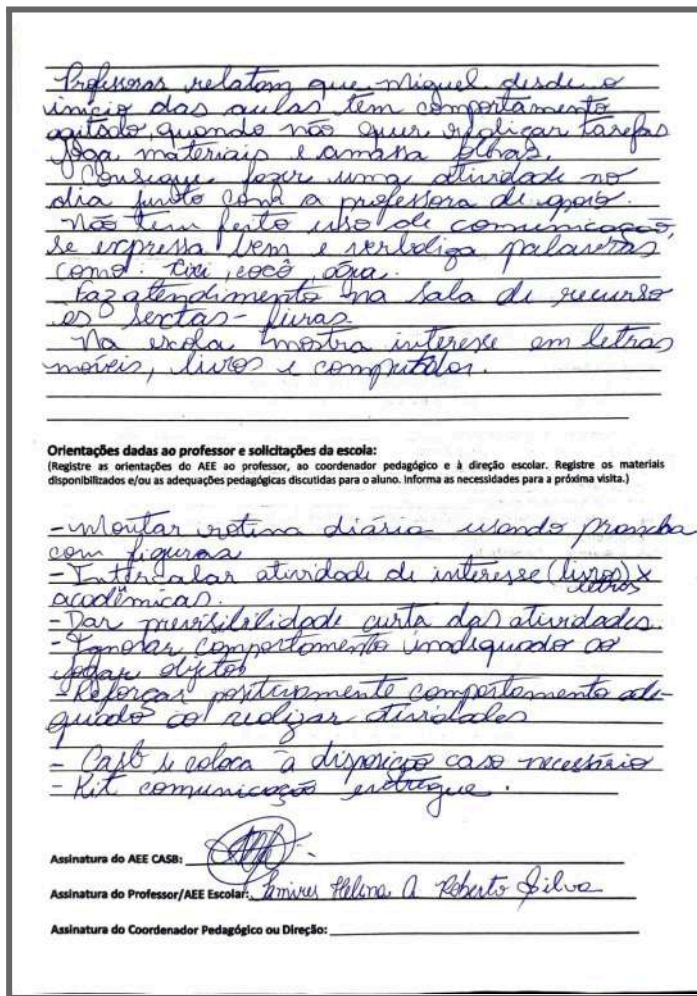 Professoras relatam que Miguel desde o
início das aulas tem comportamento
agitado, quando não quer realizar tarefas
joga materiais e amassa folhas.
Consegue fazer uma atividade no
dia junto com a professora de apoio.
Não tem feito uso de comunicação,
se expressa bem e verbaliza palavras
como: xixi, cocô, água.
Faz atendimento na sala de recurso
às sextas-feiras.
Na escola mostra interesse em letras
móveis, livros e computador.
Orientações dadas ao professor e solicitações da escola:
(Registre as orientações do AEE ao professor, ao coordenador pedagógico e à direção escolar. Registre os materiais
disponibilizados e/ou as adequações pedagógicas discutidas para o aluno. Informa as necessidades para a próxima visita.)
- Montar rotina diária usando prancha
com figuras
- Intercalar atividade de interesse (livros) x
letras
acadêmicas.
- Dar previsibilidade curta das atividades.
- Ignorar comportamento inadequado ao
jogar objetos
- Reforçar positivamente comportamento ade-
quado ao realizar atividades
- Casb se coloca à disposição caso necessário
- Kit comunicação entregue.
Assinatura do AEE CASB:
Assinatura do Professor/AEE Escolar: Tamires Helena A Roberto Silva
Assinatura do Coordenador Pedagógico ou Direção: